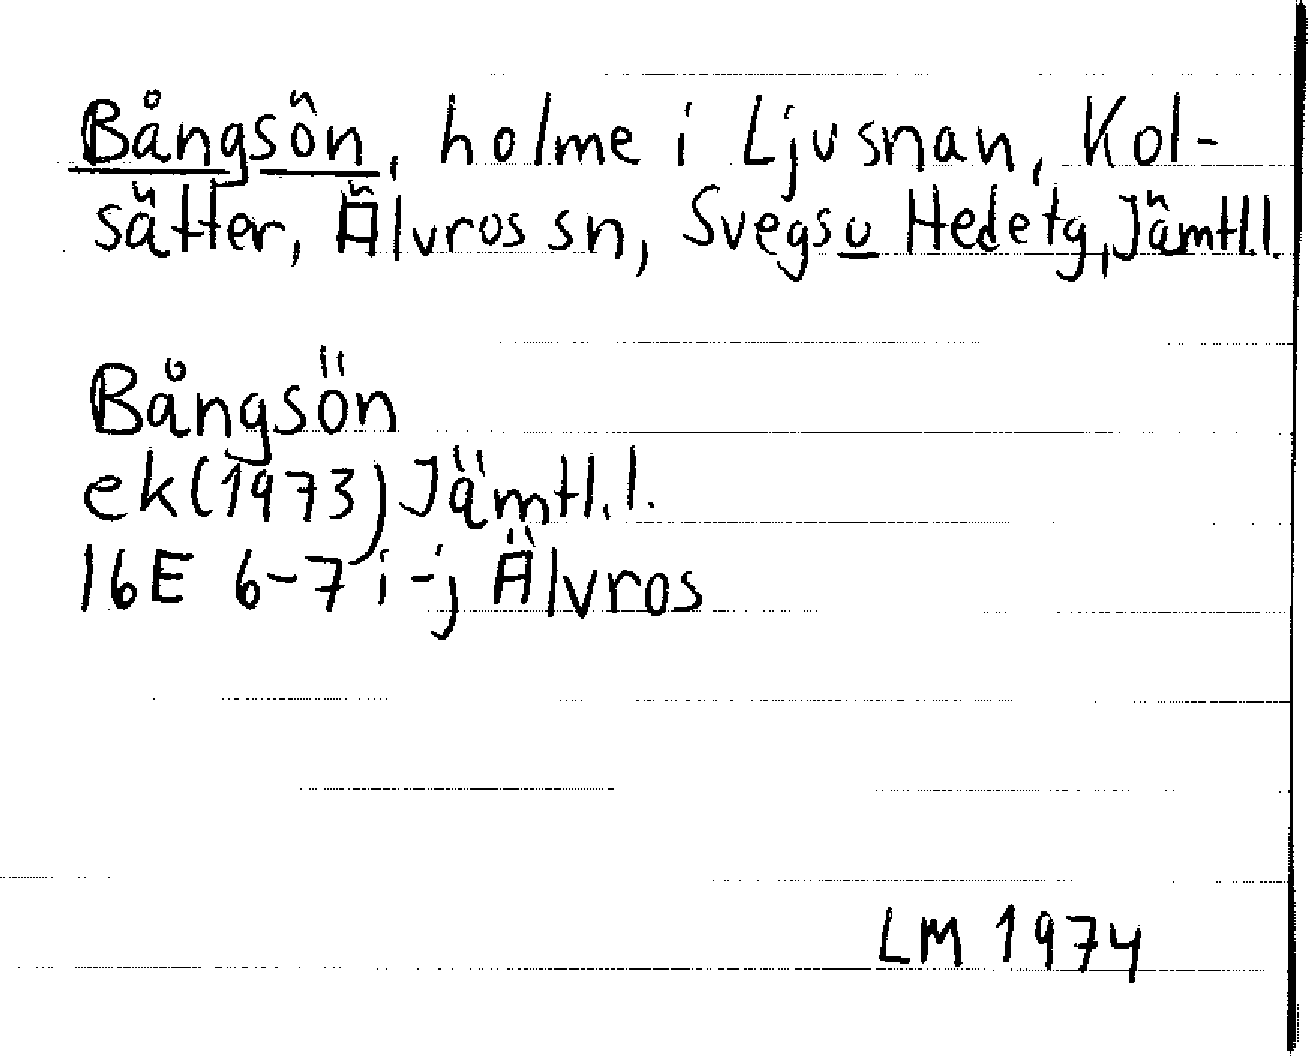 Bångsön, holme i Ljusnan, Kol-
sätter, Älvros sn, Svegs o Hede tg, Jämtl.l.
Bångsön
ek (1973) Jämtl.l.
16E 6-7 i-j Älvros
LM 1974